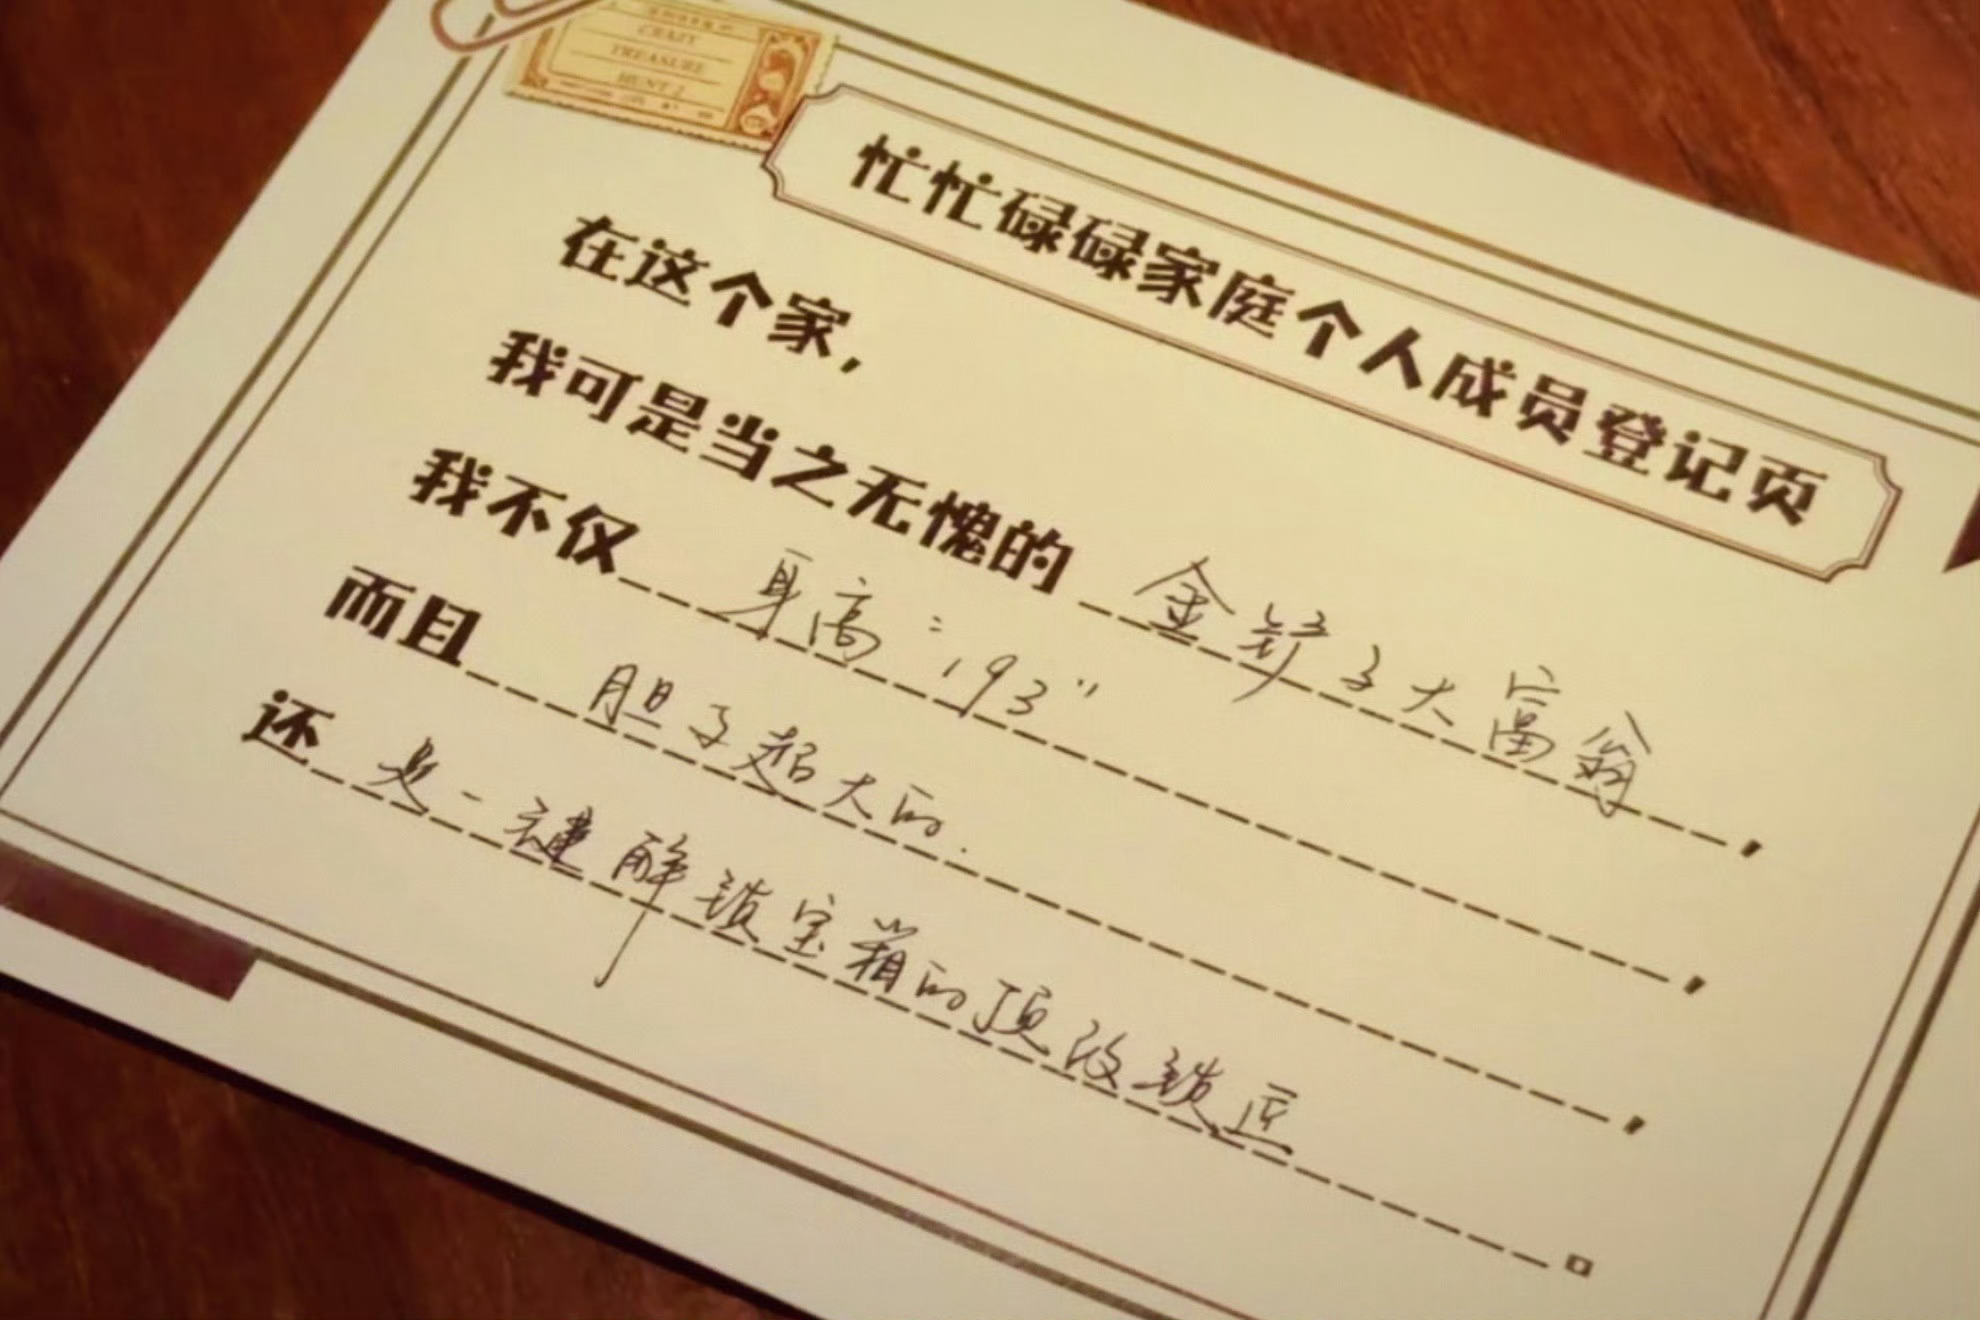 CRAZY
TREASURE
HUNT 2
忙忙碌碌家庭个人成员登记页
在这个家,
我可是当之无愧的 金铲子大富翁,
我不仅 身高“193”,
而且 胆子超大的.,
还是一键解锁宝箱的顶级锁匠。